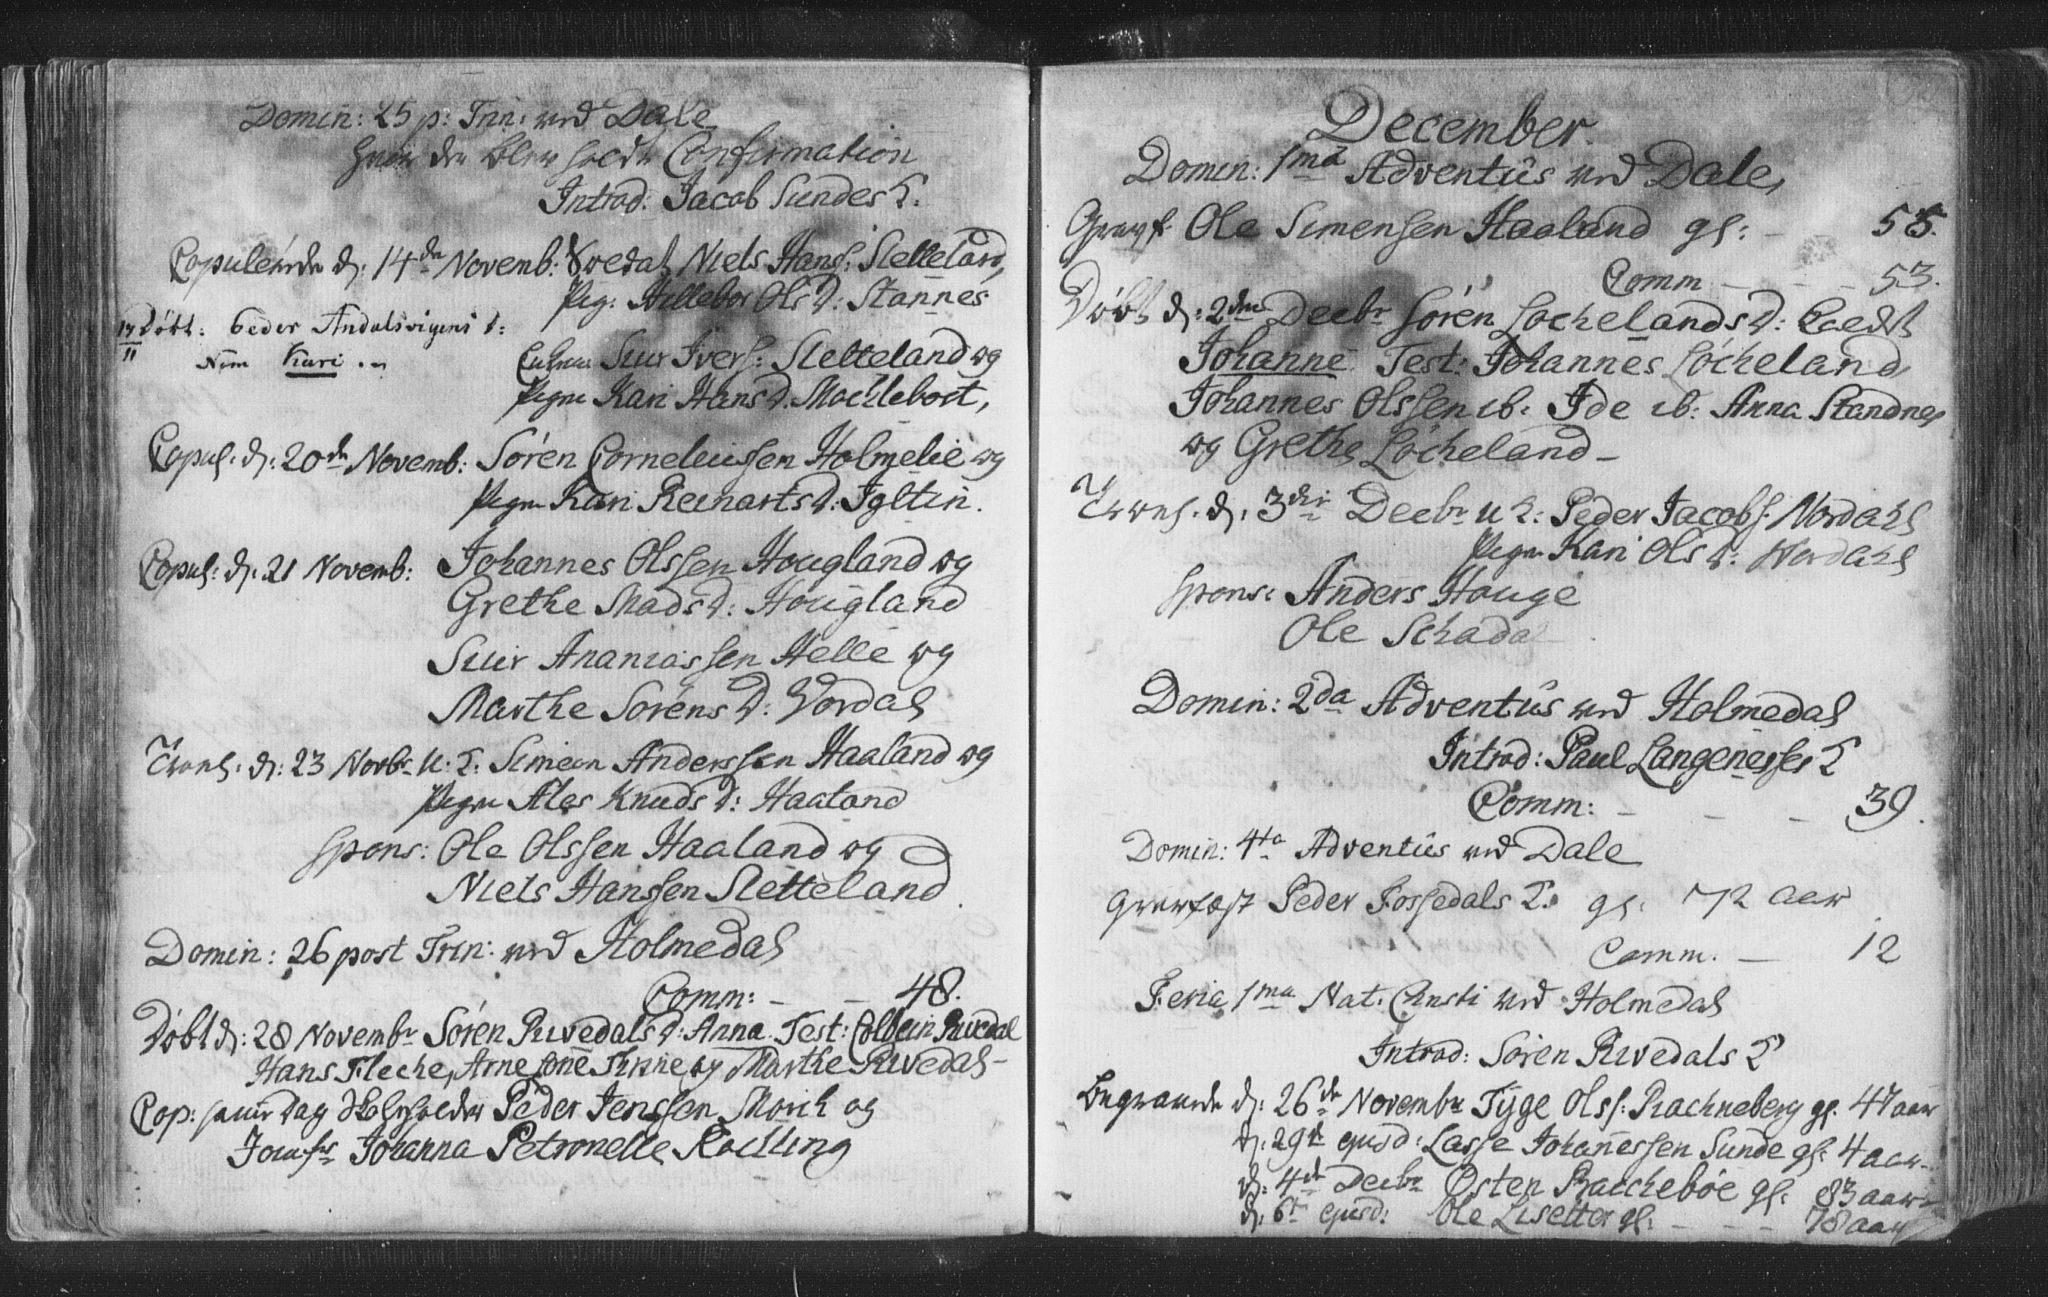 Domin: 25 p: Trin: ved Dale
hvor der blev holdt Confirmation
Introd: Jacob Sundes K.
Copulerede d: 14de Novemb: Niels Hanss: Sletteland,
Pig: Hillebor Ols D: Stannes
17/11 Døbt: Peder Andalsvigens d:
Nom Kari
Siur Iverss: Sletteland og
Pigen Kari Hans D: Mochlebost,
Copul: d: 20de Novemb: Søren Corneliussen Holmelie og
Pigen Kari Reinarts D: Igltin.
Copul: d: 21 Novemb: Johannes Olssen Hougland og
Grethe Mads D: Hougland
Siur Ananiassen Helle og
Marthe Sørens D: Vordal
Trol. d: 23 Novbr U. K: Simeon Anderssen Haaland og
Pigen Ales Knuds D: Haaland
Spons: Ole Olssen Haaland og
Niels Hanssen Sletteland.
Domin: 26 post Trin: ved Holmedal
Comm: – – 48.
Døbt d: 28 Novembr Søren Rivedals D: Anna. Test: Colbein Rivedal
Hans Fleche, Arne og Marthe Rivedal –
Cop: samme Dag Peder Jenssen Morch og
Jomfr Johanna Petronelle Rechling
December.
Domin: 1ma Adventûs ved Dale,
Gravf: Ole Simensen Haaland gl: – – 55.
Comm – – – 53.
Døbt d: 2den Decbr Søren Løchelands D: kaldt
Johanne Test: Johannes Løcheland
Johannes Olssen ib. Ide ib: Anna Standnes
og Grethe Løcheland –
Trol. d: 3die Decbr U K: Peder Jacobs: Nordahl
Pigen Kari Ols D: Nordahl
Spons: Anders Houge
Ole Schada
Domin: 2da Adventûs ved Holmedal
Introd: Paul Langenesses K
Comm: – – – 39.
Domin: 4ta Adventûs ved Dale
Gravfæst Peder Fossedals K: gl: 72 aar
Comm. – 12
Feria 1ma Nat: Christi ved Holmedal
Introd: Søren Rivedals K
Begravede d: 26de Novembr Tÿge Olss: Rachneberg gl. 47 aar
d: 29de ejusd: Lasse Johanessen Sunde gl: 4 aar
d: 4de Decbr Østen Bacchebøe gl: 83 aar
d: 6te ejusd: Ole Lisetter gl: – – – 78 aar